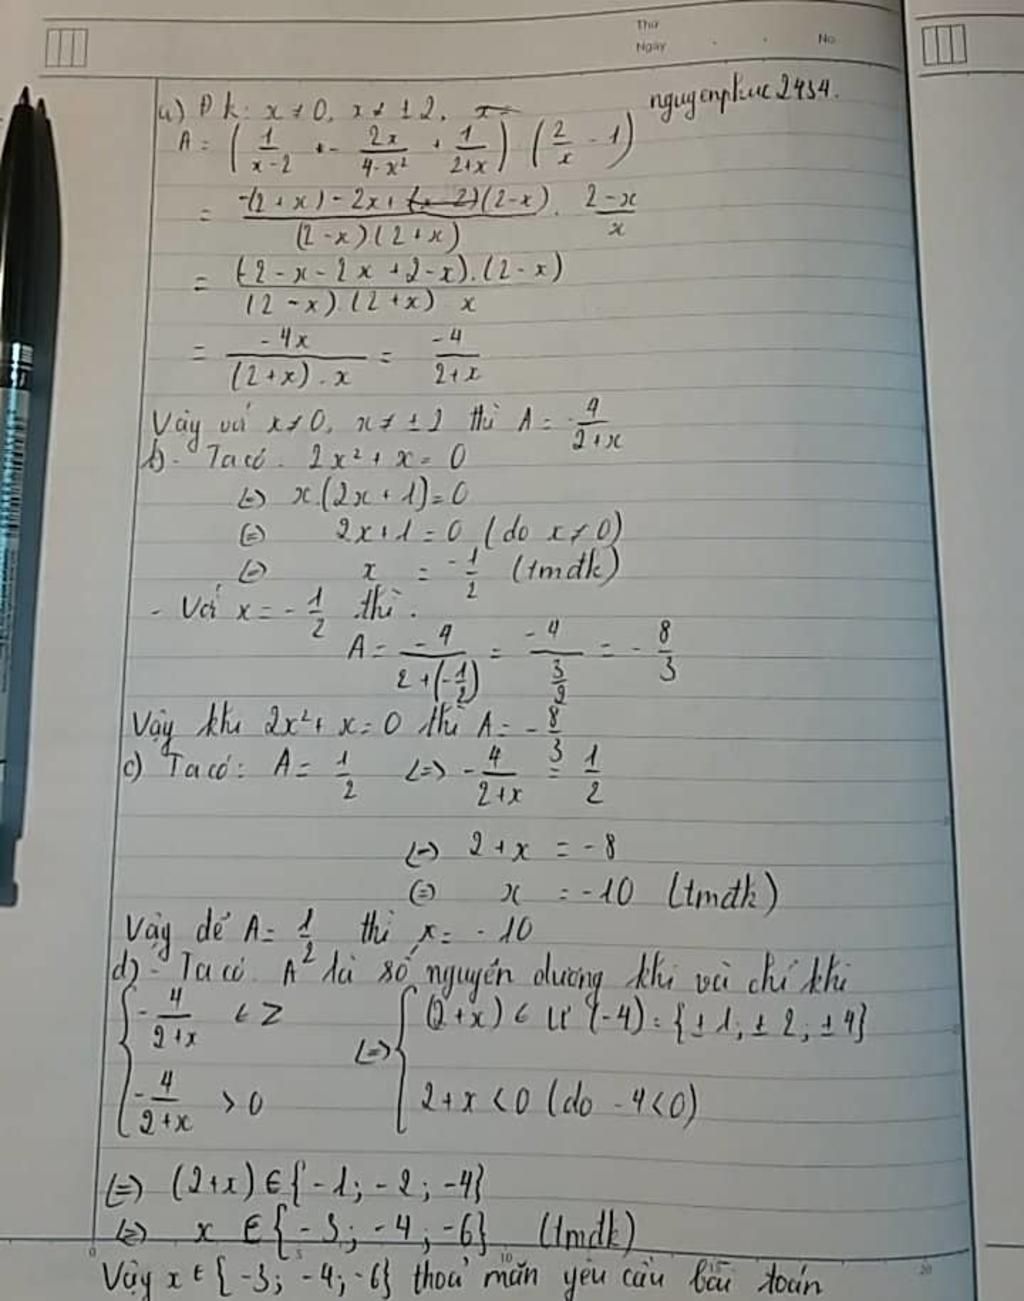 Thứ
Ngày . . No
nguyenphuc2434.
a) Đk: x ≠ 0, x ≠ ±2,
A = (1/(x-2) - 2x/(4-x²) + 1/(2+x)) (2/x - 1)
= (-(2+x) - 2x + (2-x))/((2-x)(2+x)) . (2-x)/x
= ((-2-x-2x+2-x).(2-x))/((2-x).(2+x) x)
= -4x/((2+x).x) = -4/(2+x)
Vậy với x ≠ 0, x ≠ ±2 thì A = -4/(2+x)
b) - Ta có. 2x² + x = 0
(=) x.(2x + 1) = 0
(=) 2x+1 = 0 (do x ≠ 0)
(=) x = -1/2 (tmđk)
- Với x = -1/2 thì.
A = -4/(2+(-1/2)) = -4/(3/2) = -8/3
Vậy khi 2x² + x = 0 thì A = -8/3
c) Ta có: A = 1/2 (=) -4/(2+x) = 1/2
(=) 2+x = -8
(=) x = -10 (tmđk)
Vậy để A = 1/2 thì x = -10
d) - Ta có. A là số nguyên dương khi và chỉ khi
{ -4/(2+x) ∈ Z (=) { (2+x) ∈ Ư(-4) = {±1; ±2; ±4}
-4/(2+x) > 0 2+x < 0 (do -4<0)
(=) (2+x) ∈ {-1; -2; -4}
(=) x ∈ {-3; -4; -6} (tmđk)
0 5 10 15 20
Vậy x ∈ {-3; -4; -6} thoả mãn yêu cầu bài toán